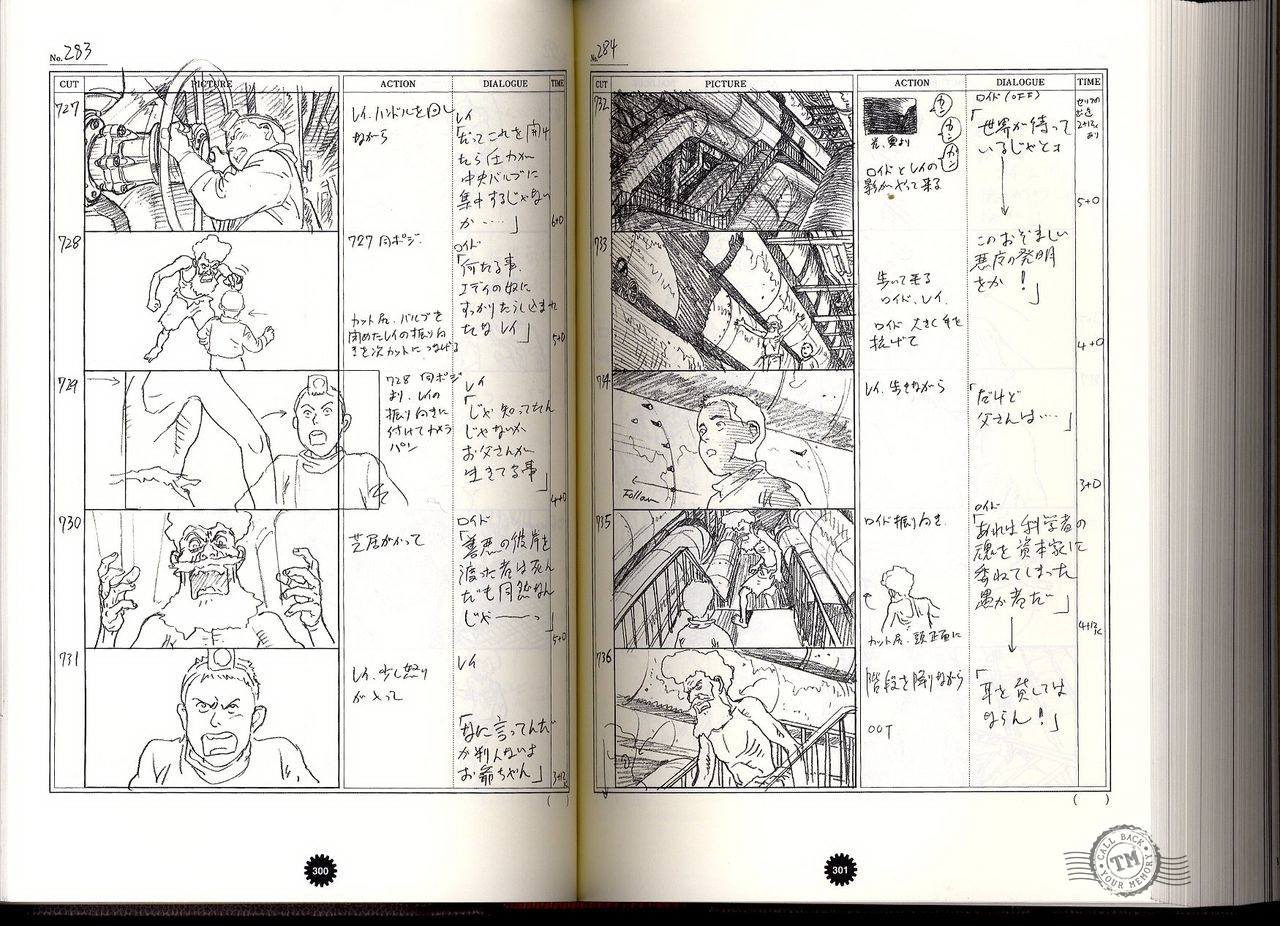 No. 283
CUT PICTURE ACTION DIALOGUE TIME
727
レイ、ハンドルを回し
ながら
レイ
「だってこれを開け
たら圧力が
中央バルブに
集中するじゃない
か……」
6+0
728
727 同ポジ.
カット尻、バルブを
閉めたレイの振り向
きを次カットにつなげる
ロイド
「何たる事、
エディの奴に
すっかりたらし込まれ
たな レイ」
5+0
729
728 同ポジ
より、レイの
振り向きに
付けてカメラ
パン
レイ
「じゃ知ってたん
じゃないか
お父さんが
生きてる事」
4+0
730
芝居がかって
ロイド
「善悪の彼岸を
渡った者は死ん
だも同然なん
じゃ――っ」
5+0
731
レイ、少し怒り
が入って
レイ
「なに言ってんだ
か判んないよ
お爺ちゃん」
3+12K
( )
300
No. 284
CUT PICTURE ACTION DIALOGUE TIME
732
光、奥より
カン
カン
カン
ロイドとレイの
影がやって来る
ロイド(OFF)
「世界が待って
いるじゃとォ
5+0
733
歩いて来る
ロイド、レイ.
ロイド 大きく手を
拡げて
このおぞましい
悪魔の発明
をか!」
4+0
734
Follow
レイ、歩きながら
「だけど
父さんは…」
3+0
735
ロイド振り向き、
カット尻、頭正面に
ロイド
「あれは科学者の
魂を資本家に
委ねてしまった
愚か者だ」
4+12K
736
階段を降りながら
OUT
「耳を貸しては
ならん!」
( )
301
CALL BACK
TM
YOUR MEMORY